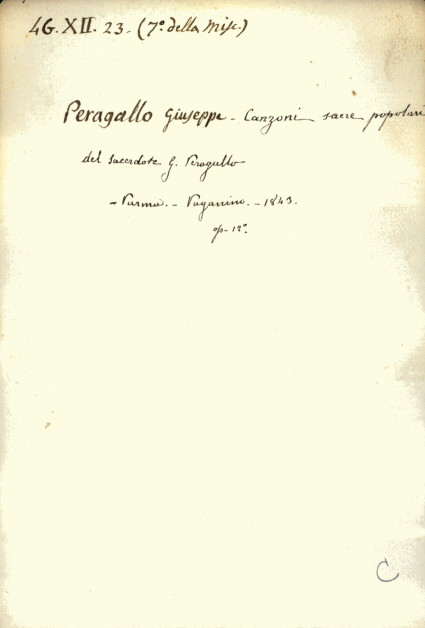 4G. XII. 23. (7º. della Misc.)
Peragallo Giuseppe - Canzoni sacre popolari
del sacerdote G. Peragallo
- Parma. - Paganino. - 1843.
op- 12º.
C